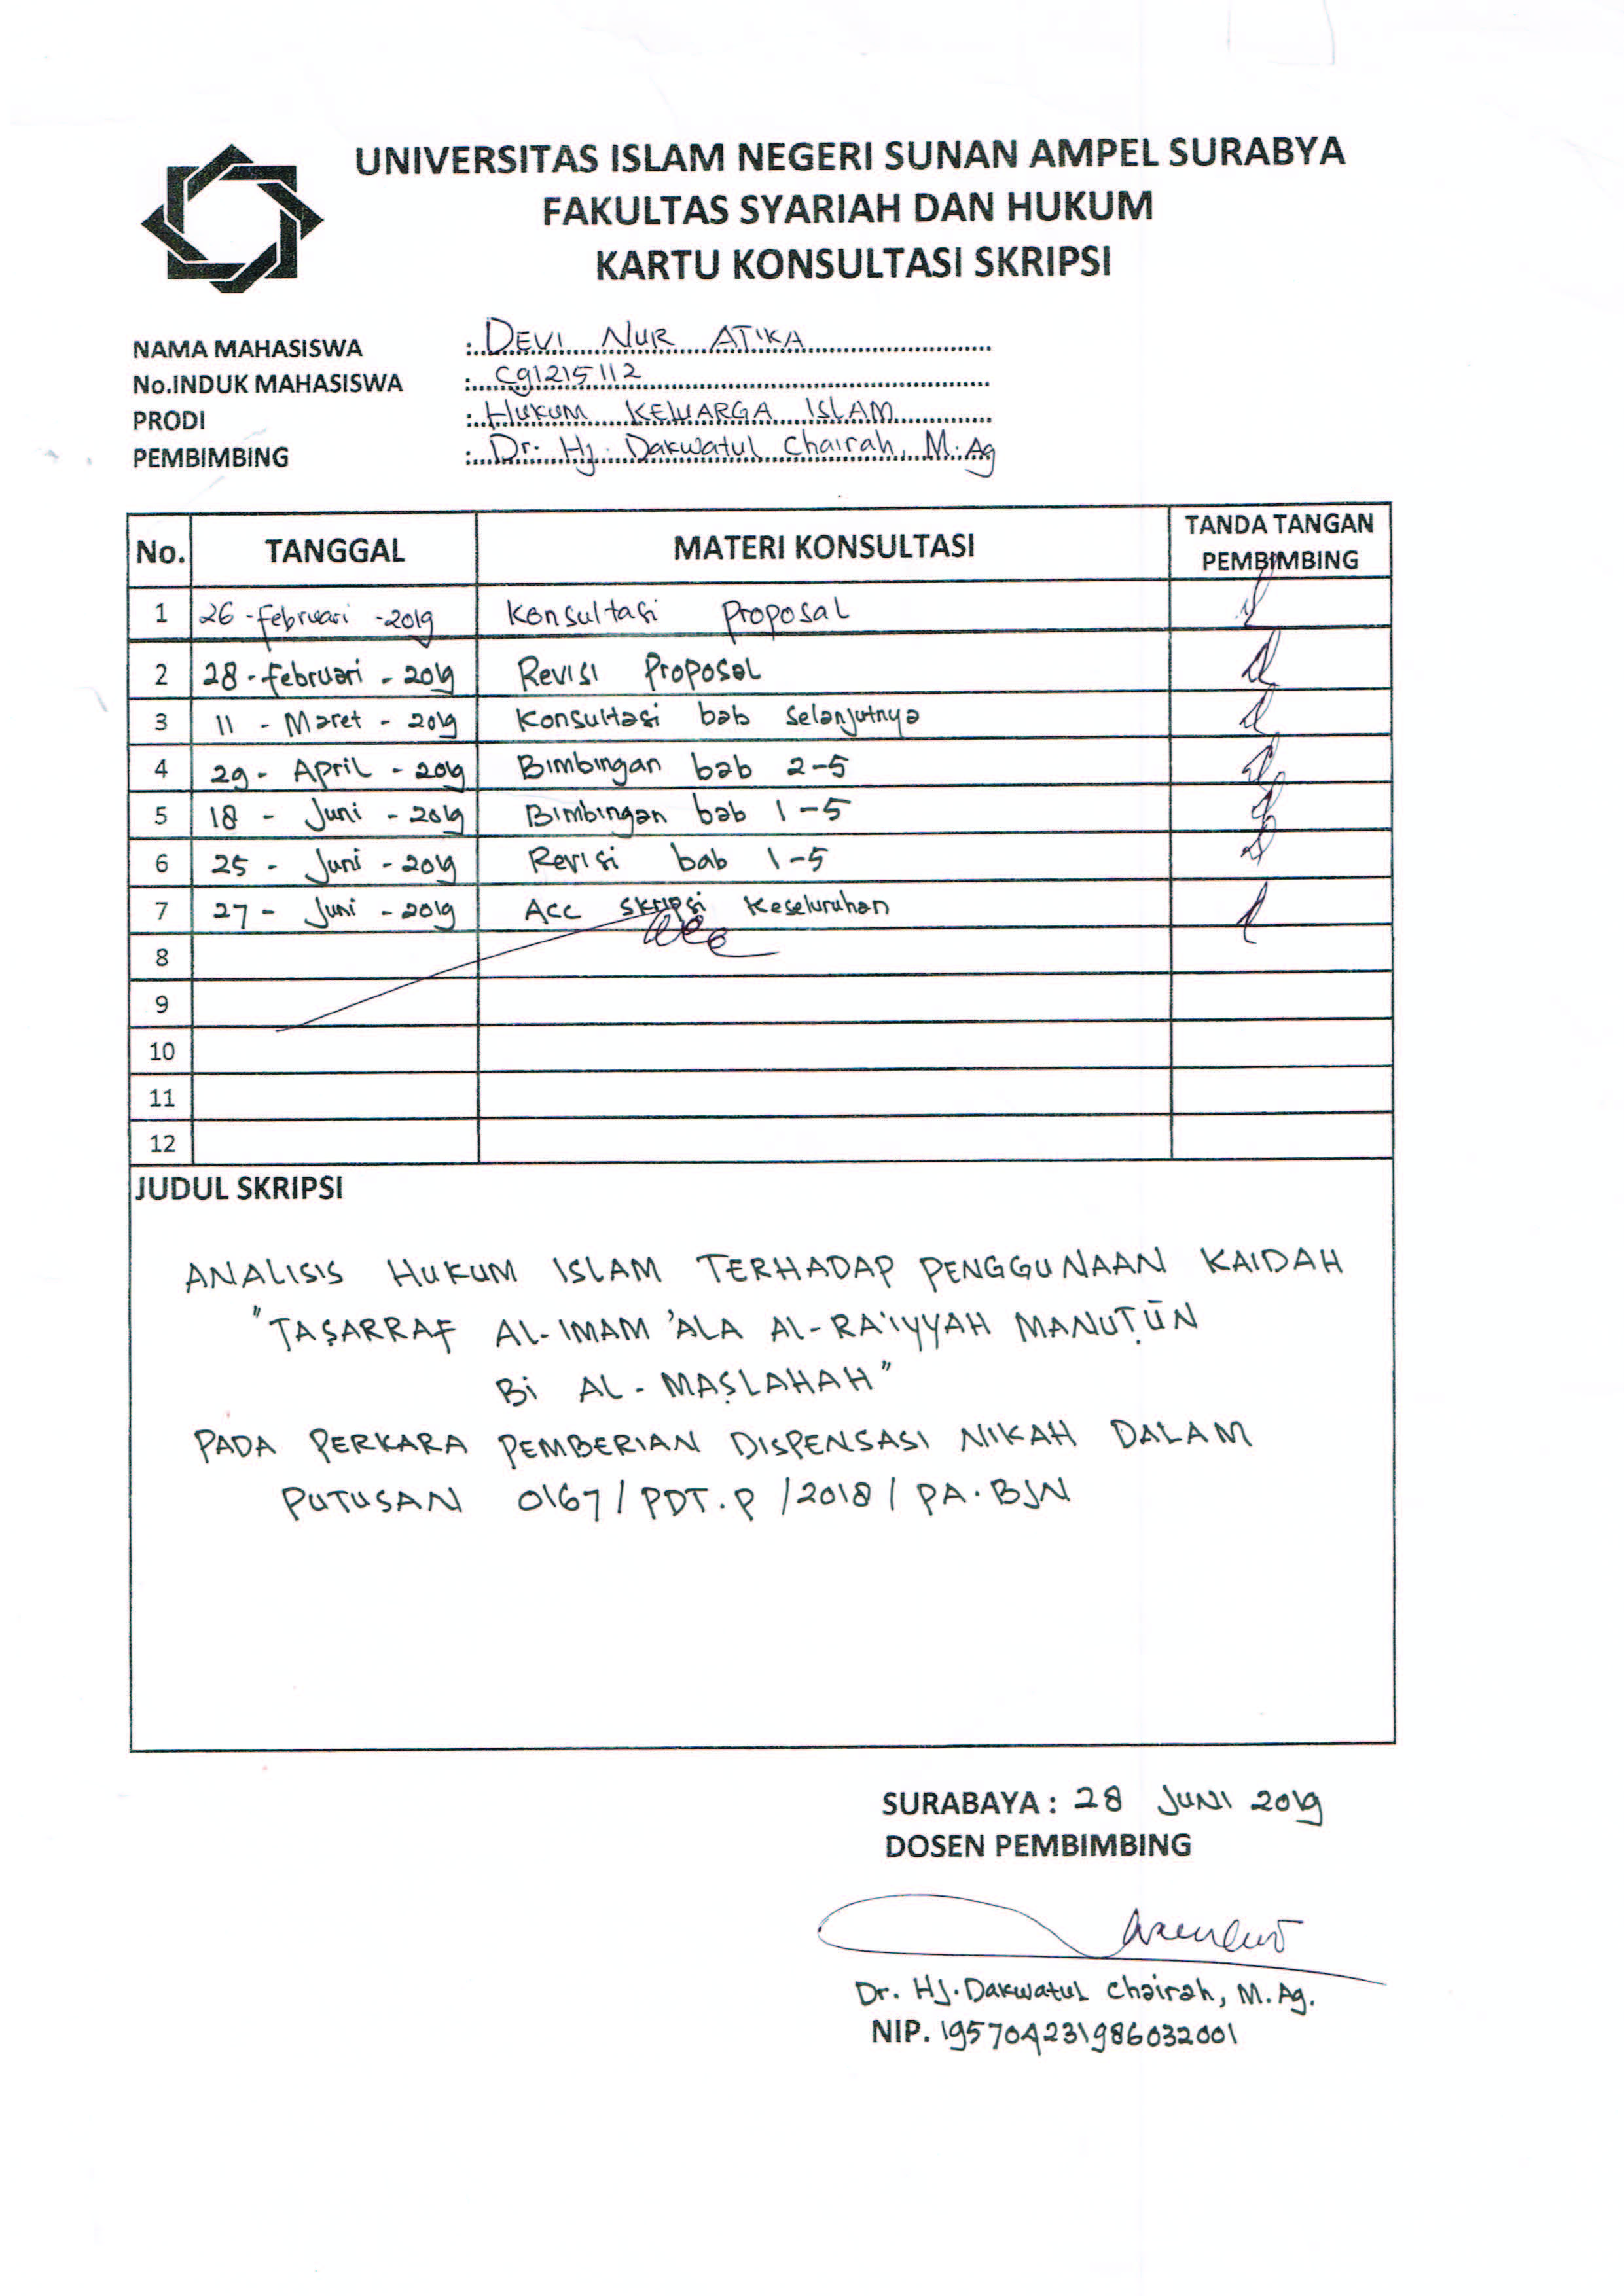 UNIVERSITAS ISLAM NEGERI SUNAN AMPEL SURABYA
FAKULTAS SYARIAH DAN HUKUM
KARTU KONSULTASI SKRIPSI
NAMA MAHASISWA : DEVI NUR ATIKA
No.INDUK MAHASISWA : C91215112
PRODI : HUKUM KELUARGA ISLAM
PEMBIMBING : Dr. Hj. Dakwatul Chairah, M.Ag
No. TANGGAL MATERI KONSULTASI TANDA TANGAN PEMBIMBING
1 26-Februari-2019 Konsultasi Proposal
2 28-Februari-2019 Revisi Proposal
3 11-Maret-2019 Konsultasi bab selanjutnya
4 29-April-2019 Bimbingan bab 2-5
5 18-Juni-2019 Bimbingan bab 1-5
6 25-Juni-2019 Revisi bab 1-5
7 27-Juni-2019 Acc Skripsi Keseluruhan
8
9
10
11
12
JUDUL SKRIPSI
ANALISIS HUKUM ISLAM TERHADAP PENGGUNAAN KAIDAH
"TAṢARRAF AL-IMAM 'ALA AL-RA'IYYAH MANUṬŪN
Bi AL-MAṢLAHAH"
PADA PERKARA PEMBERIAN DISPENSASI NIKAH DALAM
PUTUSAN 0167/PDT.P/2018/PA.BJN
SURABAYA : 28 JUNI 2019
DOSEN PEMBIMBING
Dr. Hj. Dakwatul Chairah, M.Ag.
NIP. 195704231986032001